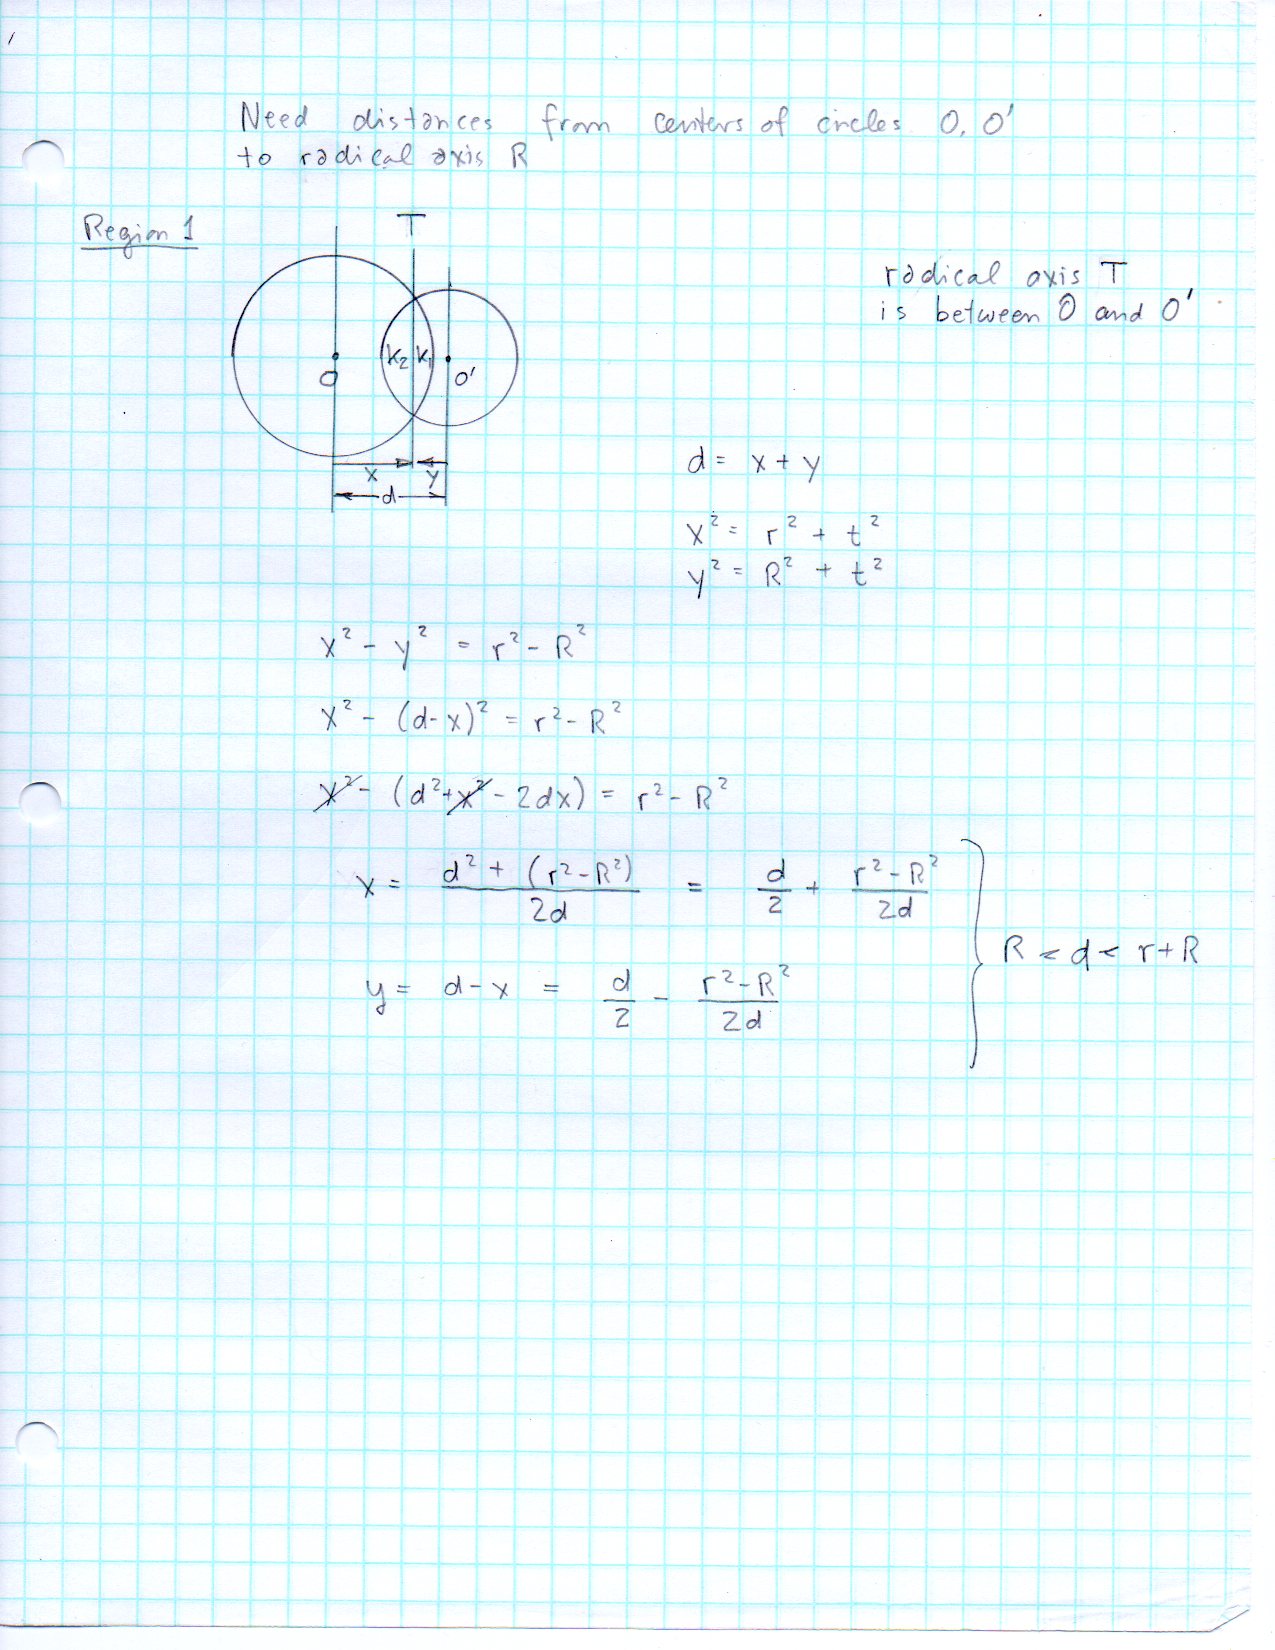 Need distances from centers of circles O, O'
to radical axis R
Region 1
T
radical axis T
is between O and O'
K₂ K₁
O O'
x y
d
d = x + y
x² = r² + t²
y² = R² + t²
x² - y² = r² - R²
x² - (d-x)² = r² - R²
x² - (d² + x² - 2dx) = r² - R²
x = (d² + (r² - R²))/2d = d/2 + (r² - R²)/2d
R < d < r + R
y = d - x = d/2 - (r² - R²)/2d